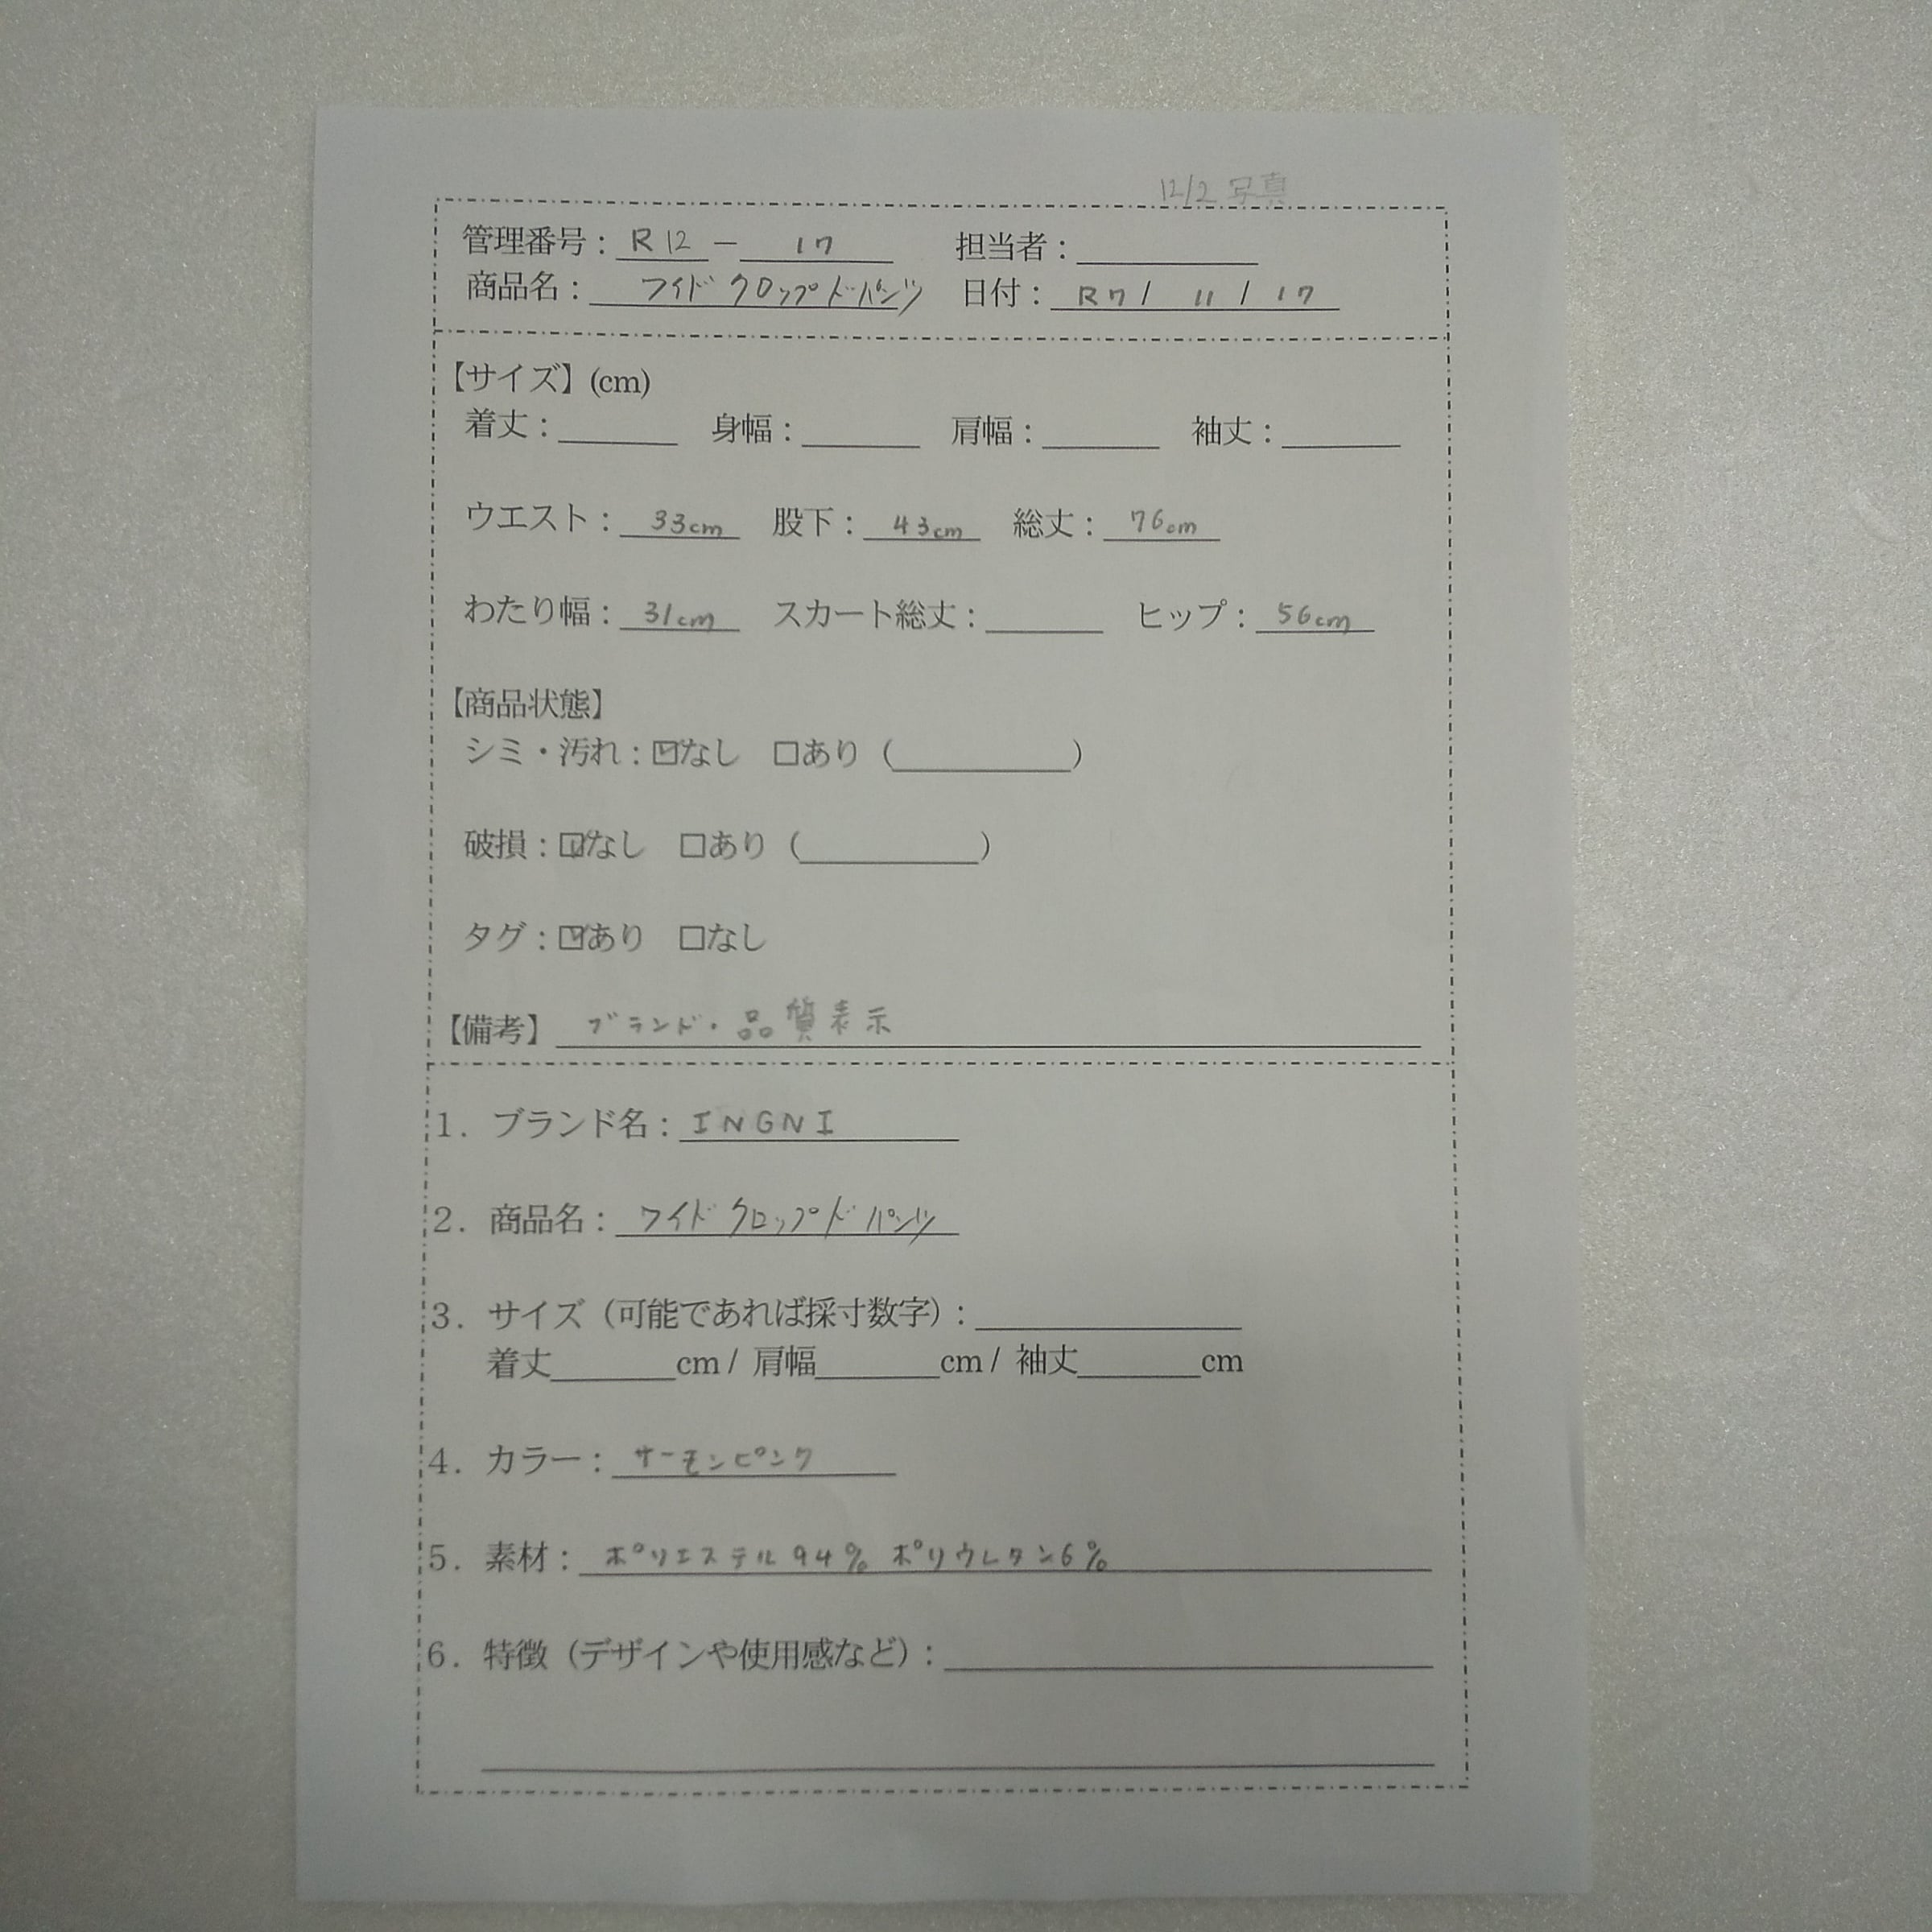 12/2 写真
管理番号：R12 － 17 担当者：
商品名：ワイドクロップドパンツ 日付：R7 / 11 / 17
【サイズ】(cm)
着丈： 身幅： 肩幅： 袖丈：
ウエスト：33cm 股下：43cm 総丈：76cm
わたり幅：31cm スカート総丈： ヒップ：56cm
【商品状態】
シミ・汚れ：☑なし □あり（ ）
破損：☑なし □あり（ ）
タグ：☑あり □なし
【備考】ブランド・品質表示
1. ブランド名：INGNI
2. 商品名：ワイドクロップドパンツ
3. サイズ（可能であれば採寸数字）：
着丈 cm / 肩幅 cm / 袖丈 cm
4. カラー：サーモンピンク
5. 素材：ポリエステル94% ポリウレタン6%
6. 特徴（デザインや使用感など）：